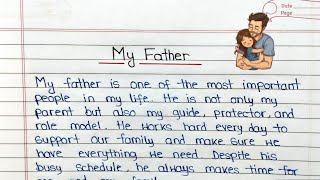 Date
Page
My Father
My father is one of the most important
people in my life. He is not only my
parent but also my guide, protector, and
role model. He works hard every day to
support our family and make sure we
have everything we need. Despite his
busy schedule, he always makes time for